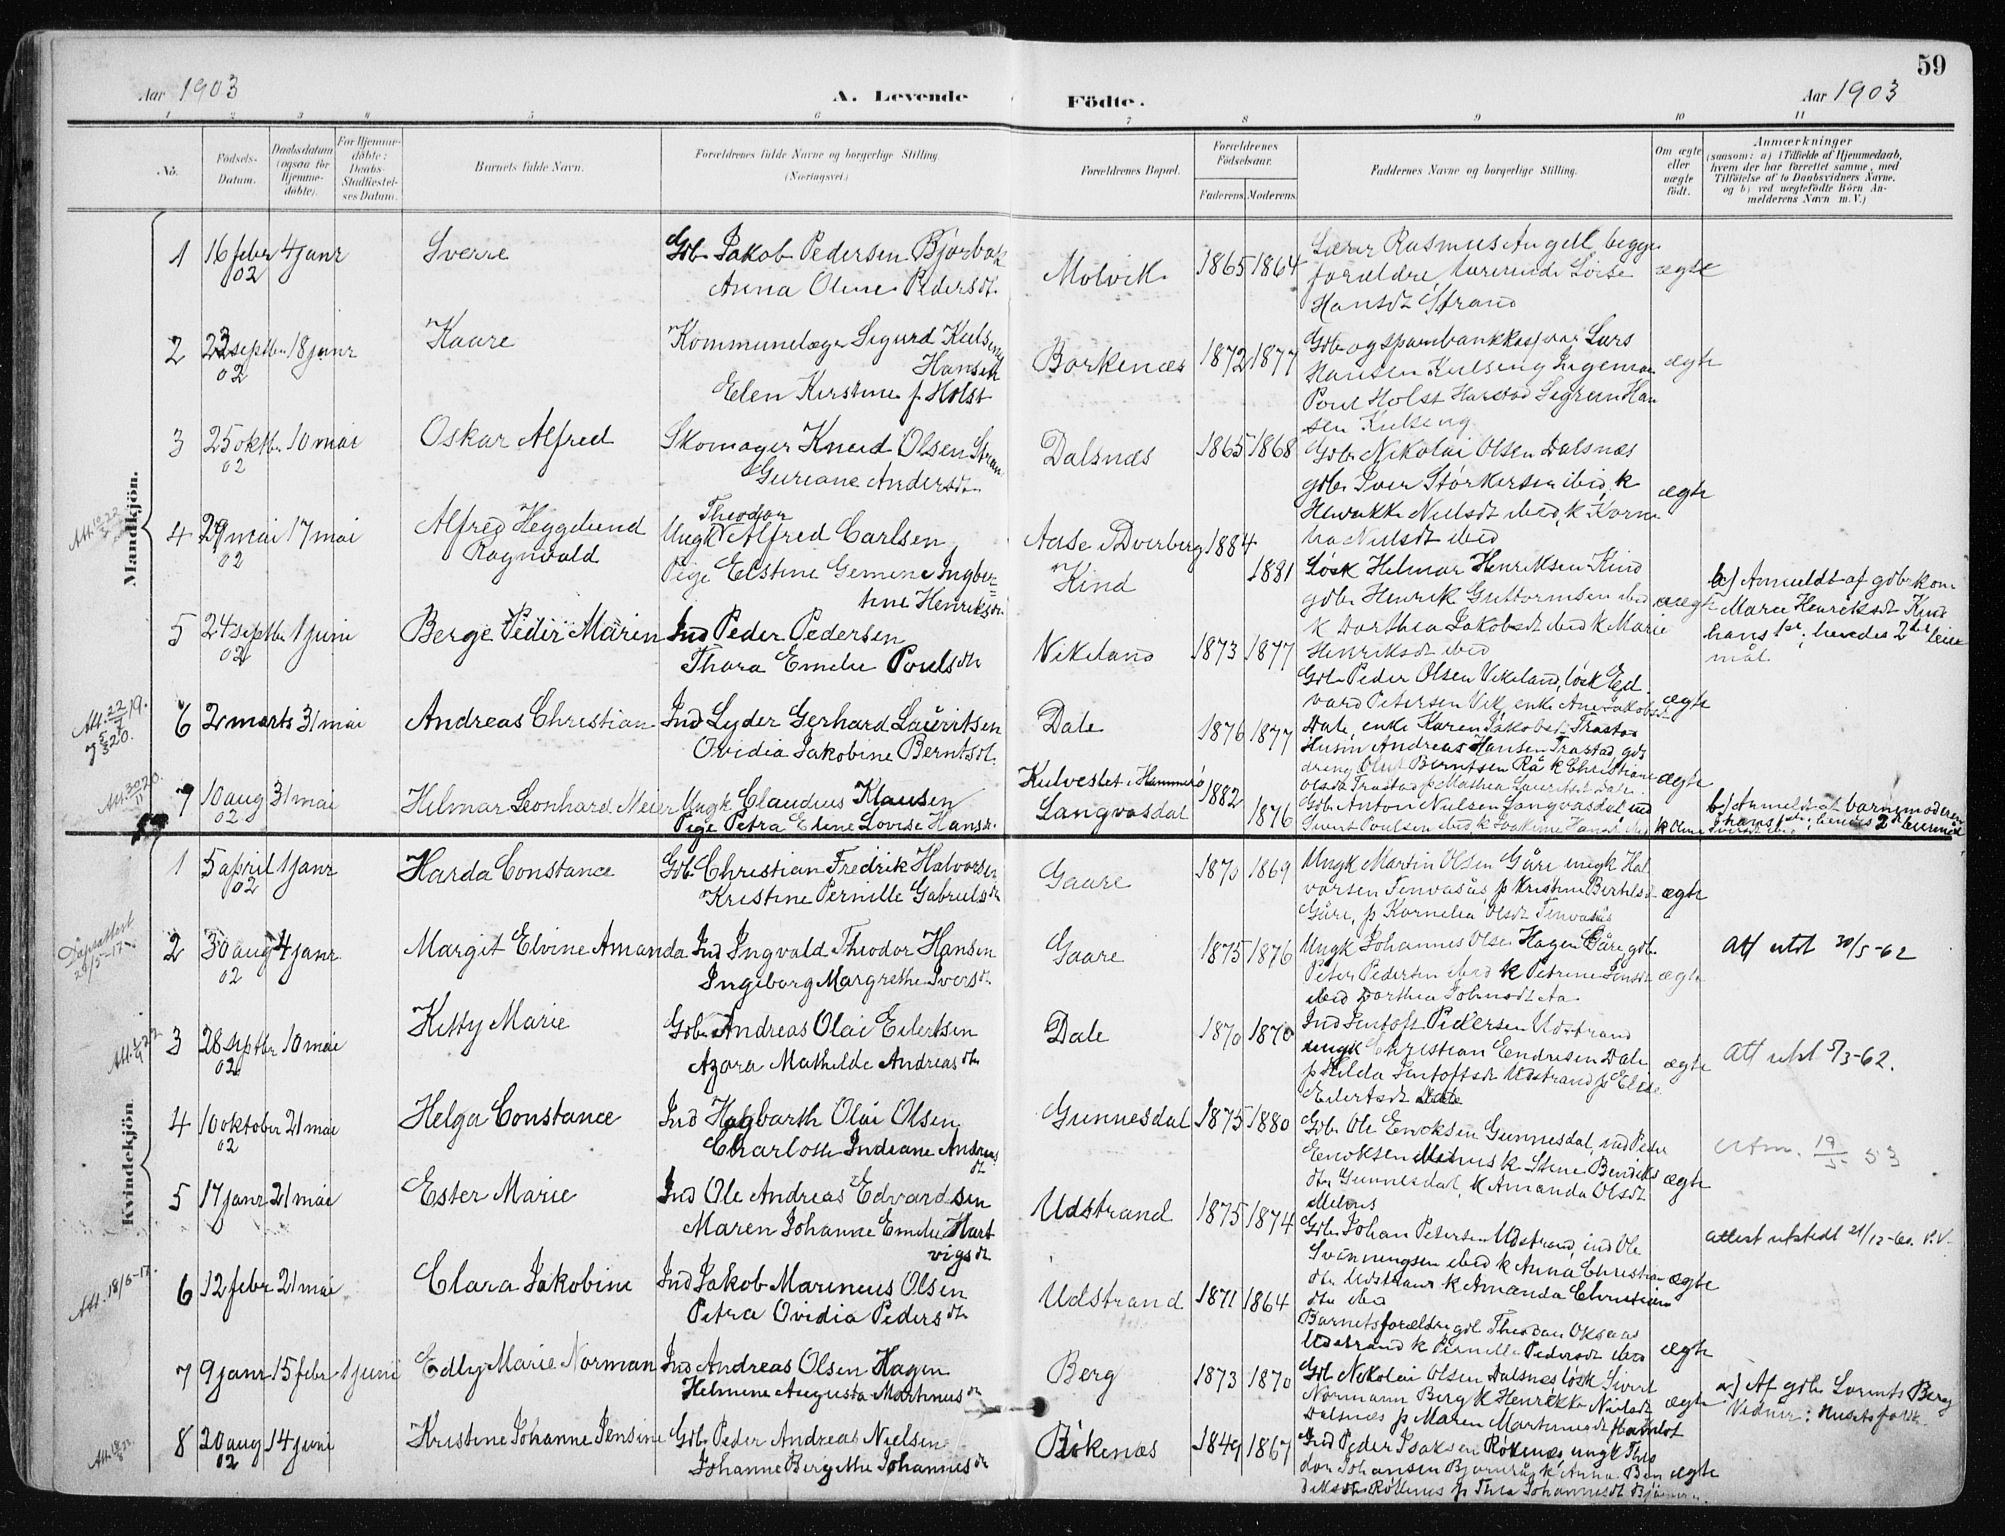 59
Aar 1903
A. Levende Födte.
Aar 1903
1 2 3 4 5 6 7 8 9 10 11
No.
Födsels-Datum.
Daabsdatum (ogsaa for Hjemme-döbte).
For Hjemme-döbte: Daabs-Stadfæstel-ses Datum.
Barnets fulde Navn.
Forældrenes fulde Navne og borgerlige Stilling. (Næringsvei.)
Forældrenes Bopæl.
Forældrenes Födselsaar.
Faderens. Moderens.
Faddernes Navne og borgerlige Stilling.
Om ægte eller uægte födt.
Anmærkninger
(saasom: a) i Tilfælde af Hjemmedaab,
hvem der har forrettet samme, med
Tilföielse af to Daabsvidners Navne,
og b) ved uægtefödte Börn An-
melderens Navn m. V.)
Mandkjön.
1 16 febr 02 4 janr Sverre Gdb. Jakob Pedersen Bjørbak
Anna Oline Pedersdt. Molvik 1865 1864
Lærer Rasmus Angell, begge
forældre, lærerinde Lovise
Hansdt Strand
ægte
2 23 septbr 02 18 janr Kaare Kommunelæge Sigurd Kulseng
Hansen
Elen Kirstine f. Holst Borkenæs 1872 1877
Gdb. og sparebankkasserer Lars
Hansen Kulseng Ingeniør
Poul Holst Harstad Sigrun Han
sen Kulseng
ægte
3 25 oktbr 02 10 mai Oskar Alfred Skomager Knud Olsen Strøm
Guriane Andersdt. Dalsnæs 1865 1868
Gdb. Nikolai Olsen Dalsnæs
gdb. Iver Störkersen ibid, k
Henrikke Nielsdt ibid, k Korne
lia Nielsdt ibid
ægte
4 29 mai 02 17 mai Alfred Heggelund
Ragnvald
Theodor
Ungk. Alfred Carlsen
Pige Elstine Gemine Ingber=
tine Henriksdt. Aase i Dverberg
Kind 1884 1881
Løsk Helmar Henriksen Kind
gdb. Henrik Guttormsen ibid
k Dorthea Jakobsdt ibid k Marie
Henriksdt ibid
uægte
b) Anmeldt af gdb. kone
Marie Henriksdt Kind
hans 1ste, hendes 2det leier
mål.
5 24 septbr 02 1 juni Berge Peder Marin Ind Peder Pedersen
Thora Emelie Poulsdtr Vikeland 1873 1877
Gdb. Peder Olsen Vikeland, løsk Ed-
vard Petersen Vik, enke Ane Jakobsdt
ægte
6 2 marts 31 mai Andreas Christian Ind Lyder Gerhard Lauritsen
Ovidia Jakobine Berntsdt. Dale 1876 1877
Dale, enke Karen Jakobsdt Trastad
Husm Andreas Hansen Trastad, gdb
dreng Oluf Berntsen Rå k Christiane
Olsdt Trastad p Mathea Lauritsdt Dale
ægte
Att. 22/1 19.
og 5/3 20.
7 10 aug 02 31 mai Helmar Leonhard Meier Ungk Claudius Klausen
Pige Petra Elene Lovise Hansdt. Kulveslet i Hammerø
Langvasdal 1882 1876
Gdb. Anton Nielsen Langvasdal, ind
Sivert Poulsen ibid k Joakime Hansdt ibid k Oline
b) Anmeldt af barnemoderen
hans 1ste, hendes 2det leiermål
Att. 30/11 20.
Kvindekjön
1 5 april 02 1 janr Harda Constance Gdb. Christian Fredrik Halvorsen
Kristine Pernille Gabrielsdtr Gaare 1870 1869
Ungk Martin Olsen Gåre ungk Hal
vorsen Tenvasås, p Kristine Bertelsdt
Gåre, p Kornelia Olsdt Tenvasås
ægte
2 30 aug 02 4 janr Margit Elvine Amanda Ind Ingvald Theodor Hansen
Ingeborg Margrethe Iversdt. Gaare 1875 1876
Ungk Johannes Olsen Hagen Gåre gdb.
Peter Pedersen ibid k Petrine Jensdt
ibid Dorthea Johnsdt Aa
ægte
Att utst 30/5-62
Dåpsattest
29/5-17.
3 28 septbr 02 10 mai Kitty Marie Gdb. Andreas Olai Eilertsen
Azora Mathilde Andreasdtr Dale 1870 1870
Ind Jentoft Pedersen Udstrand
ungk Christian Eendresen Dale
p Hilda Jentoftsdt Udstrand p Elise
Eilertsdt Dale
ægte
Att utst 5/3-62.
4 10 oktober 02 21 mai Helga Constance Ind Hagbarth Olai Olsen
Charlotte Indiane Andreas
dt Gunnesdal 1875 1880
Gdb. Ole Enoksen Gunnesdal, ind Peder
Enoksen Melnes k Stine Bendiks
dtr Gunnesdal, k Amanda Olsdt
Melnes
ægte
19/5 53
5 17 janr 21 mai Ester Marie Ind Ole Andreas Edvardsen
Maren Johanne Emelie Hart
vigsdt Udstrand 1875 1874
Gdb. Johan Petersen Udstrand, ind Ole
Svenningsen ibid k Anna Christian
dtr Udstrand k Amanda Christians
dtr ibid
ægte
attest utstedt 21/12-60.
6 12 febr 21 mai Clara Jakobine Ind Jakob Marineus Olsen
Petra Ovidia Pedersdtr Udstrand 1871 1864
Barnets forældre gdb. Theodor Oksaas
Udstrand k Pernille Pedersdt ibid
ægte
Att. 18/6-17.
7 9 janr 15 febr 1 juni Edly Marie Norman Ind Andreas Olsen Hagen
Helmine Augusta Martinusdt Berg 1873 1870
Gdb. Nikolai Olsen Dalsnæs løsk Sivert
Normann Berg k Henrikke Nielsdt
Dalsnæs p Maren Martinusdt
ægte
a) Af gdb. Lorents Berg
Vidner: Husetsfolk.
8 20 aug 02 14 juni Kristine Johanne Jensine Gdb. Peder Andreas Nielsen
Johanne Bergithe Johannesdt Rökenæs 1849 1867
Ind Peder Isaksen Rökenæs, ungk Theo
dor Johansen Bjørnrå k Anna Ben
diksdtr Rökenæs p Thea Johannesdt
ægte